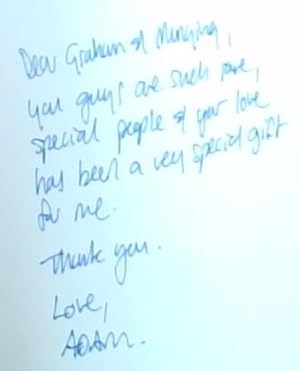 Dear Graham & Munging,
you guys are such rare,
special people & your love
has been a very special gift
for me.
Thank you.
Love,
ADAM.